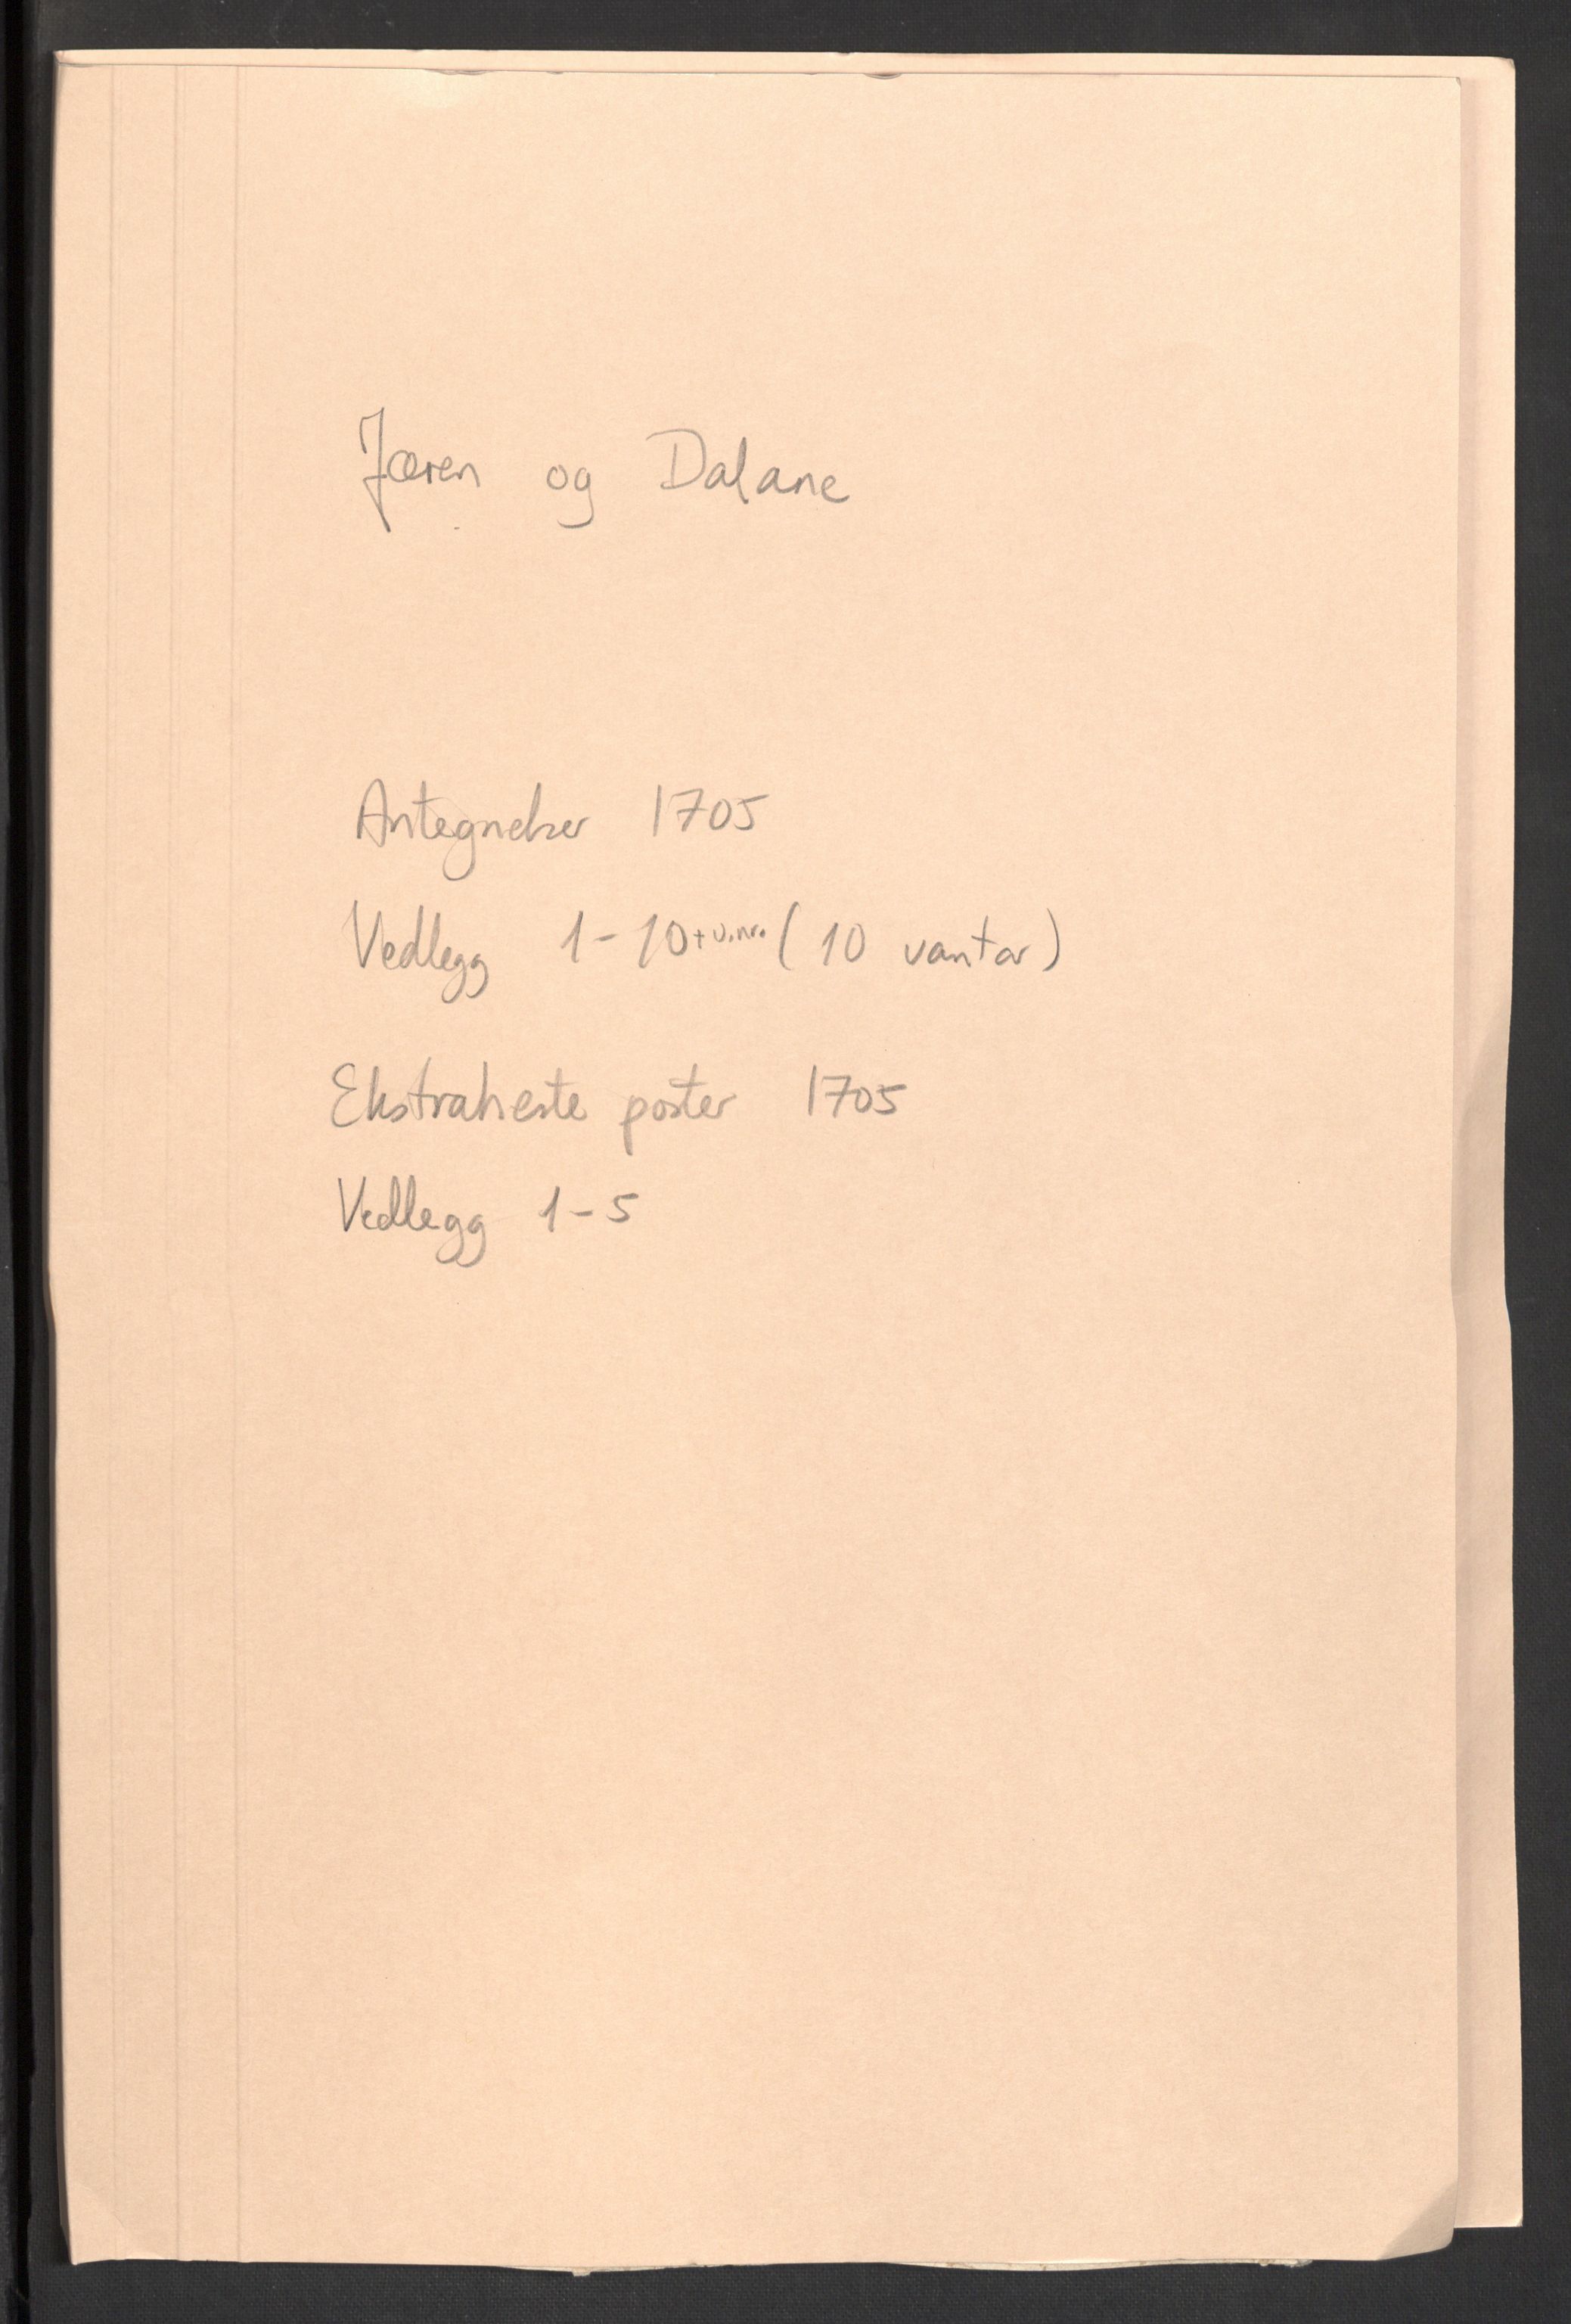 Jæren og Dalane
Antegnelser 1705
Vedlegg 1-10 + u.nr. (10 vantar)
Ekstraherte poster 1705
Vedlegg 1-5